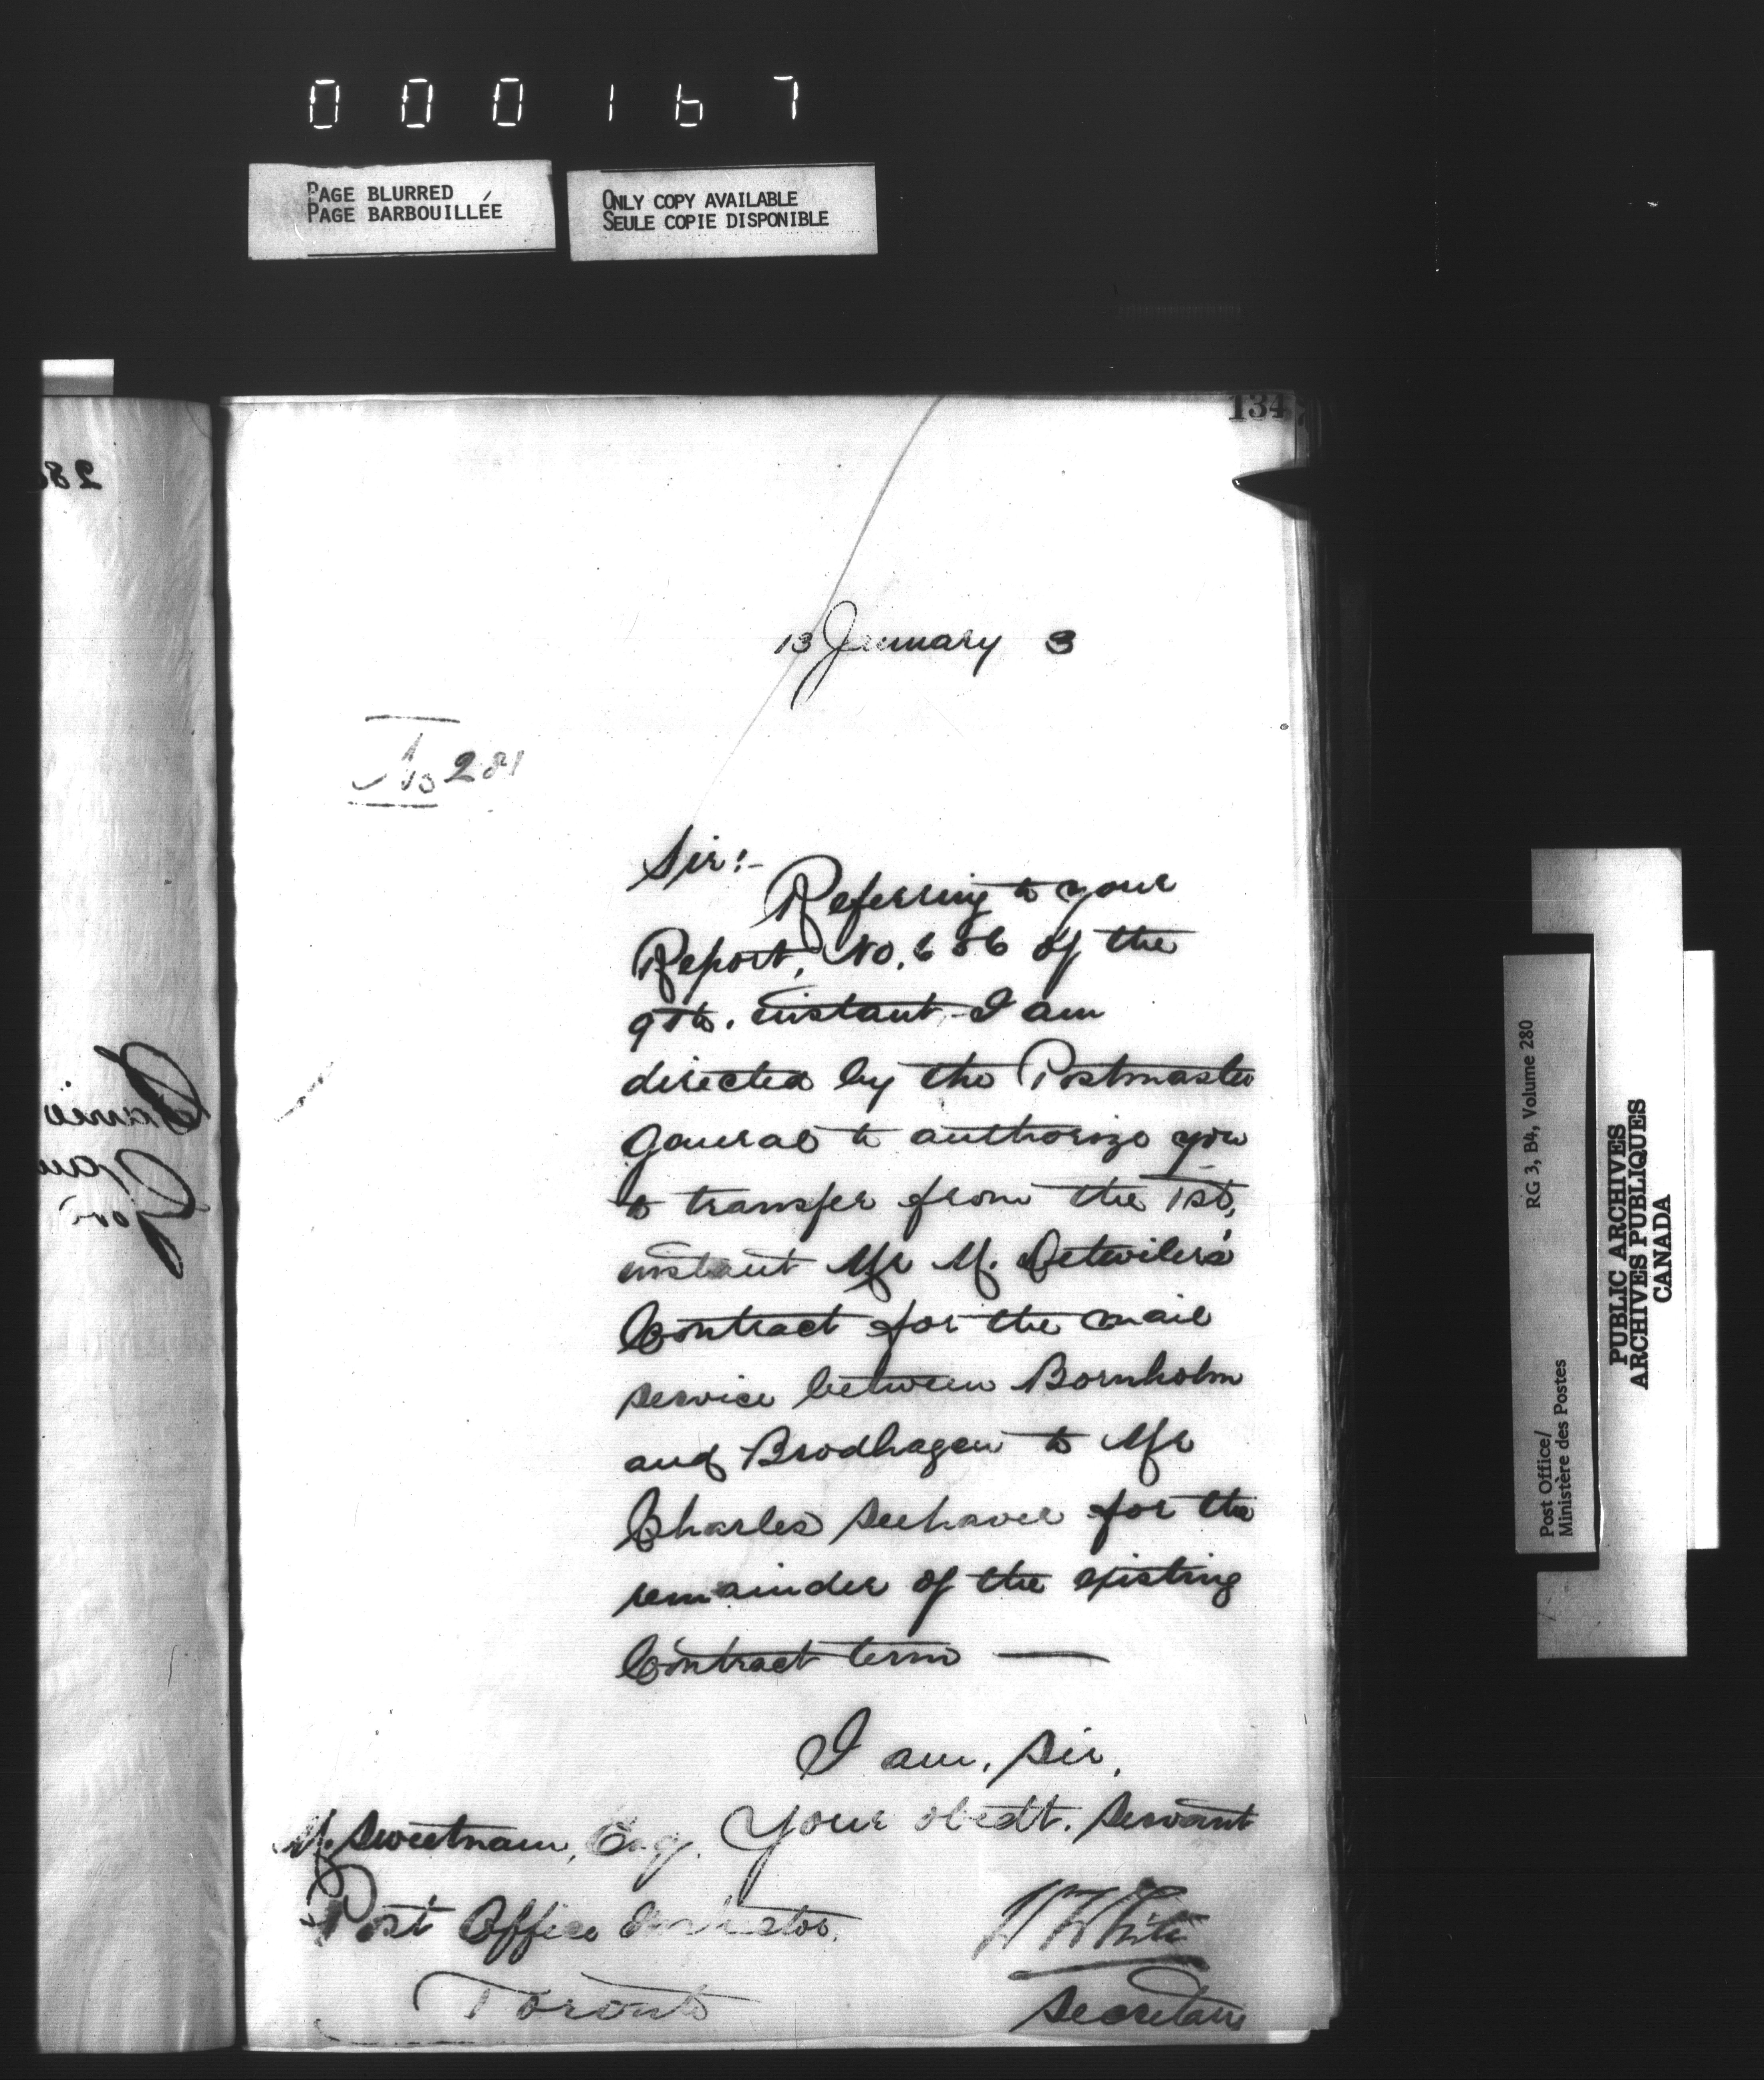 000167
PAGE BLURRED
PAGE BARBOUILLÉE
ONLY COPY AVAILABLE
SEULE COPIE DISPONIBLE
134
28
13 January 3
No 281
Sir:-
Referring to your
Report, No. 636 of the
9th. instant I am
directed by the Postmaster
General to authorize you
to transfer from the 1st,
instant Mr M. Detwiler's
Contract for the mail
service between Bornholm
and Brodhagen to Mr
Charles for the
remainder of the existing
Contract term —
I am, Sir,
Your obedt. Servant
M. Sweetnam, Esq.
Post Office Inspector.
Toronto
W White
Secretary
RG 3, B4, Volume 280
Post Office/
Ministère des Postes
PUBLIC ARCHIVES
ARCHIVES PUBLIQUES
CANADA